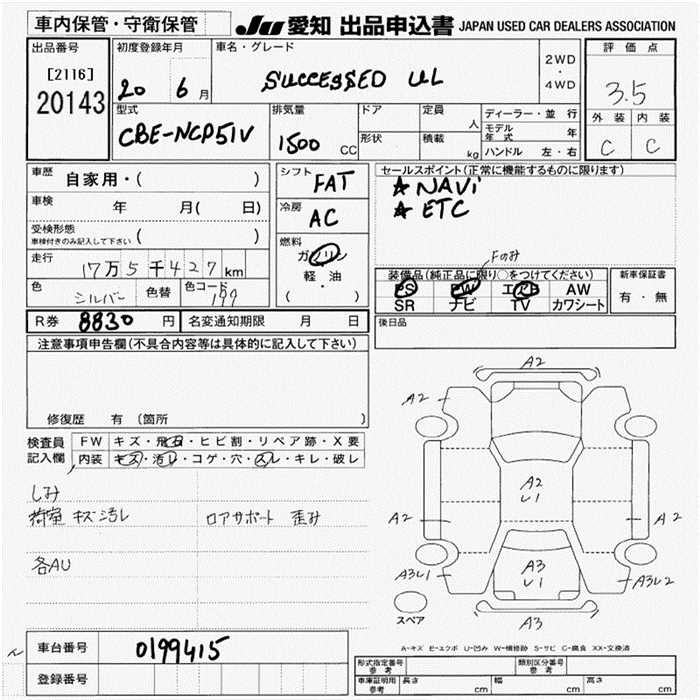 車内保管・守衛保管
JU 愛知 出品申込書 JAPAN USED CAR DEALERS ASSOCIATION
出品番号
[2116]
20143
初度登録年月
20 6月
車名・グレード
SUCCESSED UL
2WD
・
4WD
評価点
3.5
外装 内装
C C
型式
CBE-NCP51V
排気量
1500 CC
ドア
形状
定員
人
積載
kg
ディーラー・並行
モデル年式 年
ハンドル 左・右
車歴
自家用・( )
車検
年 月( 日)
受検形態
車検付きのみ記入して下さい ( )
走行
17万5千427km
色
シルバー
色替
色コード
199
シフト
FAT
冷房
AC
燃料
ガソリン
軽・油
( ・ )
セールスポイント(正常に機能するものに限ります)
☆ NAVi
☆ ETC
Fのみ
装備品(純正品に限り○をつけてください)
PS PW エアB AW
SR ナビ TV カワシート
新車保証書
有・無
R券 8830 円
名変通知期限 月 日
後日品
注意事項申告欄(不具合内容等は具体的に記入して下さい)
修復歴 有 (箇所 )
検査員
記入欄
FW キズ・飛石・ヒビ割・リペア跡・X要
内装 キズ・汚レ・コゲ・穴・スレ・キレ・破レ
しみ
荷室 キズ汚レ
ロアサポート 歪み
各AU
A2
A2
A2
A2
U1
A2
A2
A3U1
A3
U1
A3U2
A3
スペア
A-キズ E-エクボ U-凹み W-補修跡 S-サビ C-腐食 XX-交換済
車台番号
0199415
登録番号
型式指定番号
参考
類別区分番号
参考
車庫証明用
参考
長さ cm
幅 cm
高さ cm